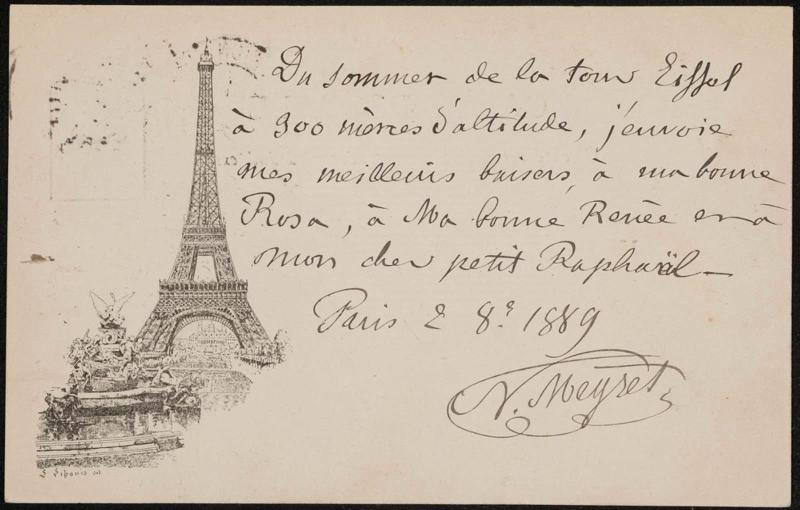 Du sommet de la tour Eiffel
à 300 mètres d'altitude, j'envoie
mes meilleurs baisers, à ma bonne
Rosa, à Ma bonne Renée et à
mon cher petit Raphaël –
Paris 2 8e 1889
N. Meyret